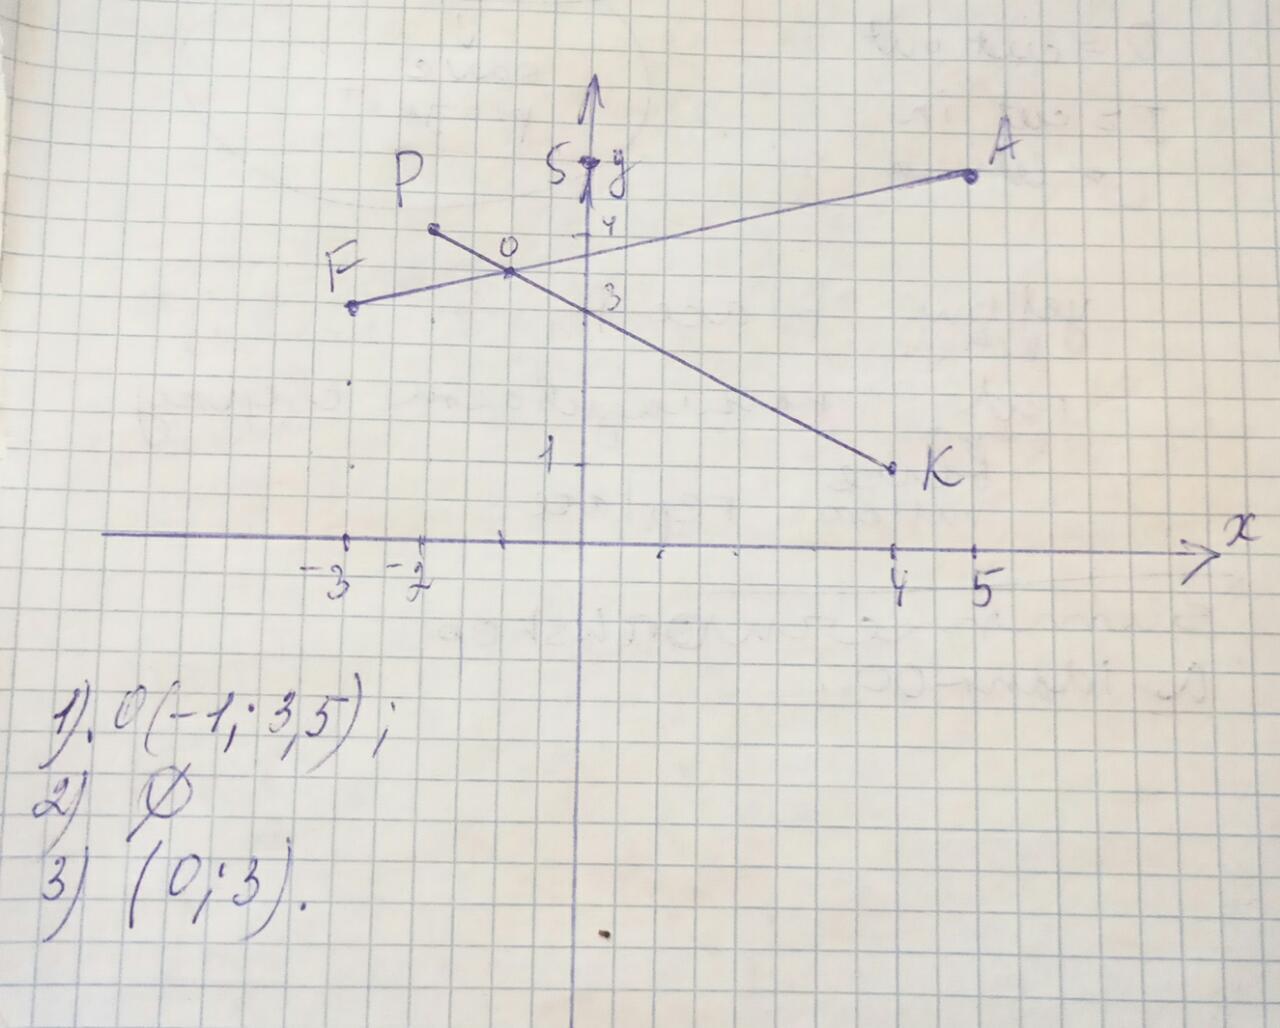 A
S y
P
4
O
F
3
1
K
x
-3 -2 4 5
1). O(-1; 3,5);
2) ∅
3) (0; 3).